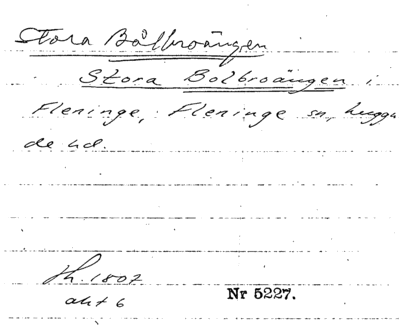 Stora Bålbroängen
Stora Bolbroängen i
Fleninge, Fleninge sn, Luggu
de hd.
Jh. 1807
akt 6
Nr 5227.